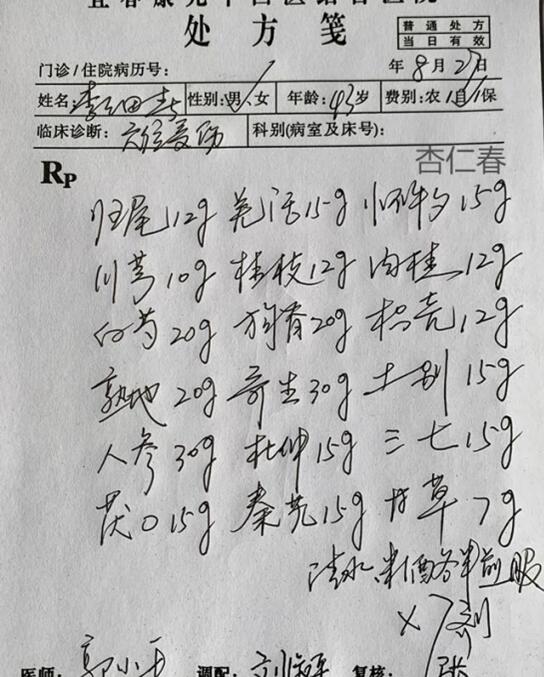 处方笺
普通处方
当日有效
门诊/住院病历号: 年8月27日
姓名: 性别:男、女 年龄:43岁 费别:农、自、保
临床诊断: 科别(病室及床号):
杏仁春
Rp
归尾12g 羌活15g 怀牛夕15g
川芎10g 桂枝12g 肉桂12g
白芍20g 狗脊20g 枳壳12g
熟地20g 寄生30g 土别15g
人参30g 杜仲15g 三七15g
茯0 15g 秦艽15g 甘草7g
清水、米酒各半煎服
×7剂
医师: 郭小 调配: 复核: 张